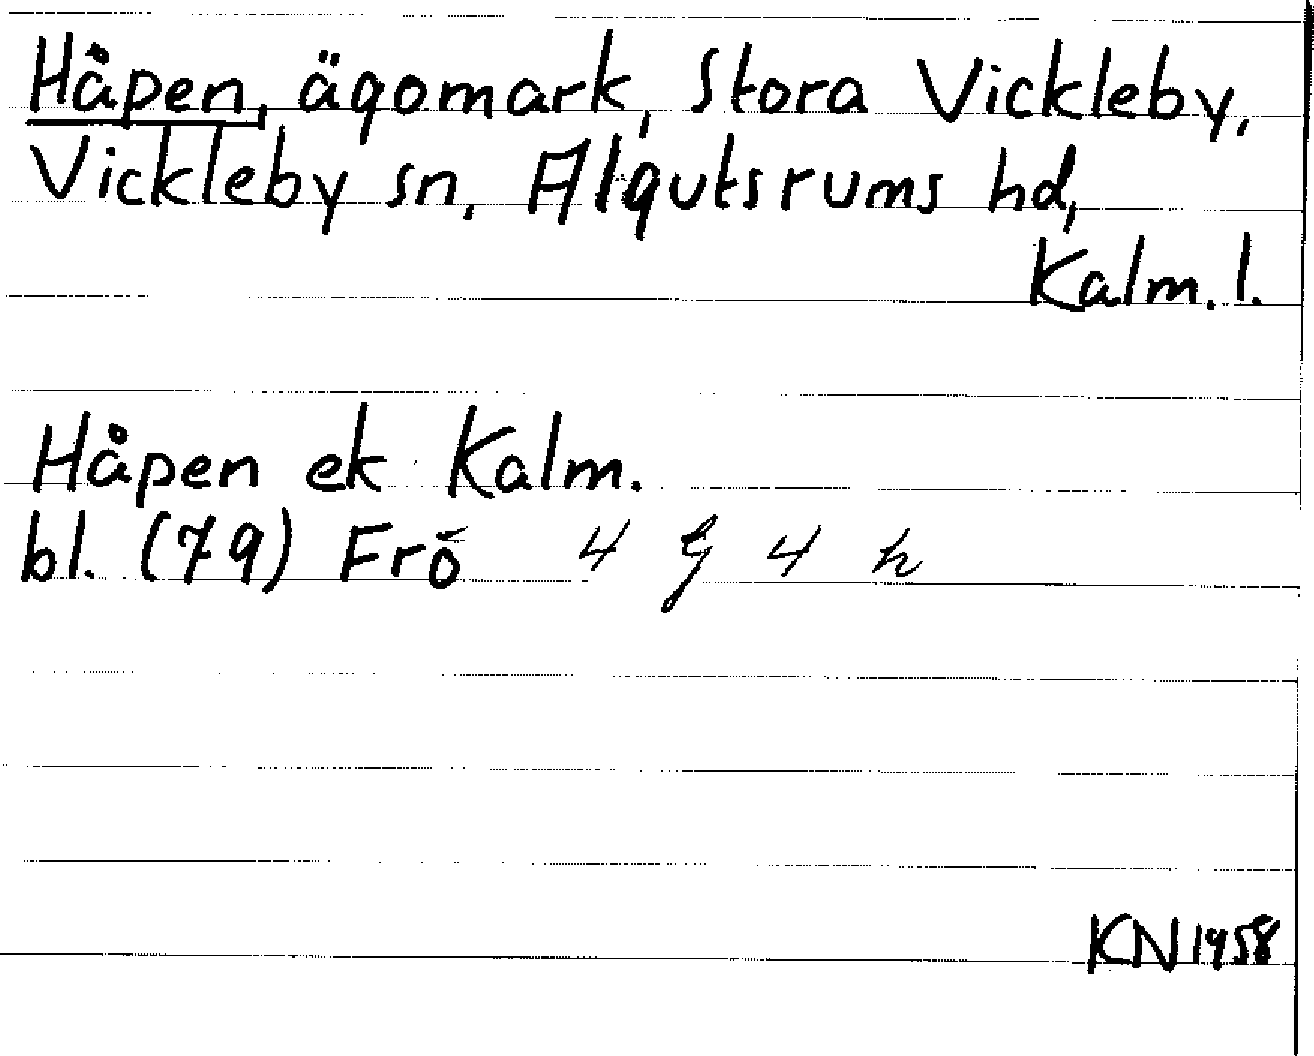 Håpen, ägomark, Stora Vickleby,
Vickleby sn, Algutsrums hd,
Kalm. l.
Håpen ek Kalm.
bl. (79) Frö 4 g 4 h
KN 1958